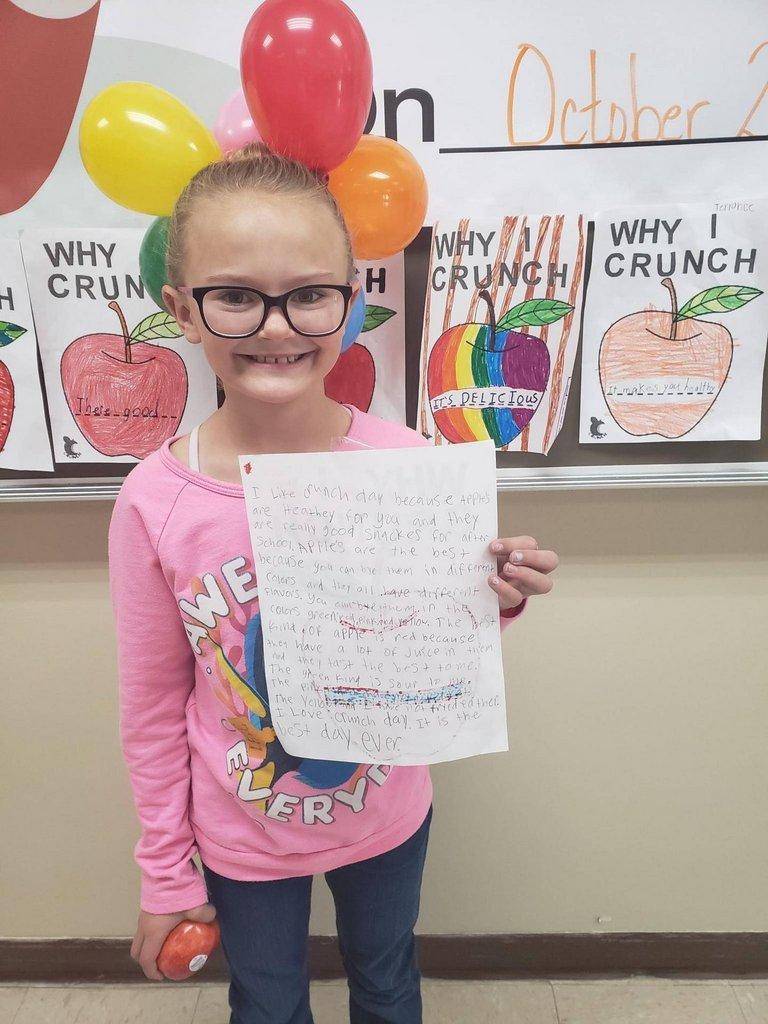 on October 2
Terrance
WHY I CRUNCH
It makes you healthy
WHY I CRUNCH
IT'S DELICIOUS
H
WHY
CRUN
There good
H
I Like crunch day because Apples
are Heathey for you and they
are really good snackes for after
school. APPles are the best
because you can bye them in different
colors and they all have different
flavors. You can bye them in the
colors green red, pink and yellow. The best
kind of apple is red because
they have a lot of Juice in them
and they tast the best to me.
The green King is sour to me.
The
The I have not tried either.
I Love crunch day. It is the
best day ever.
AWE
EVERYD